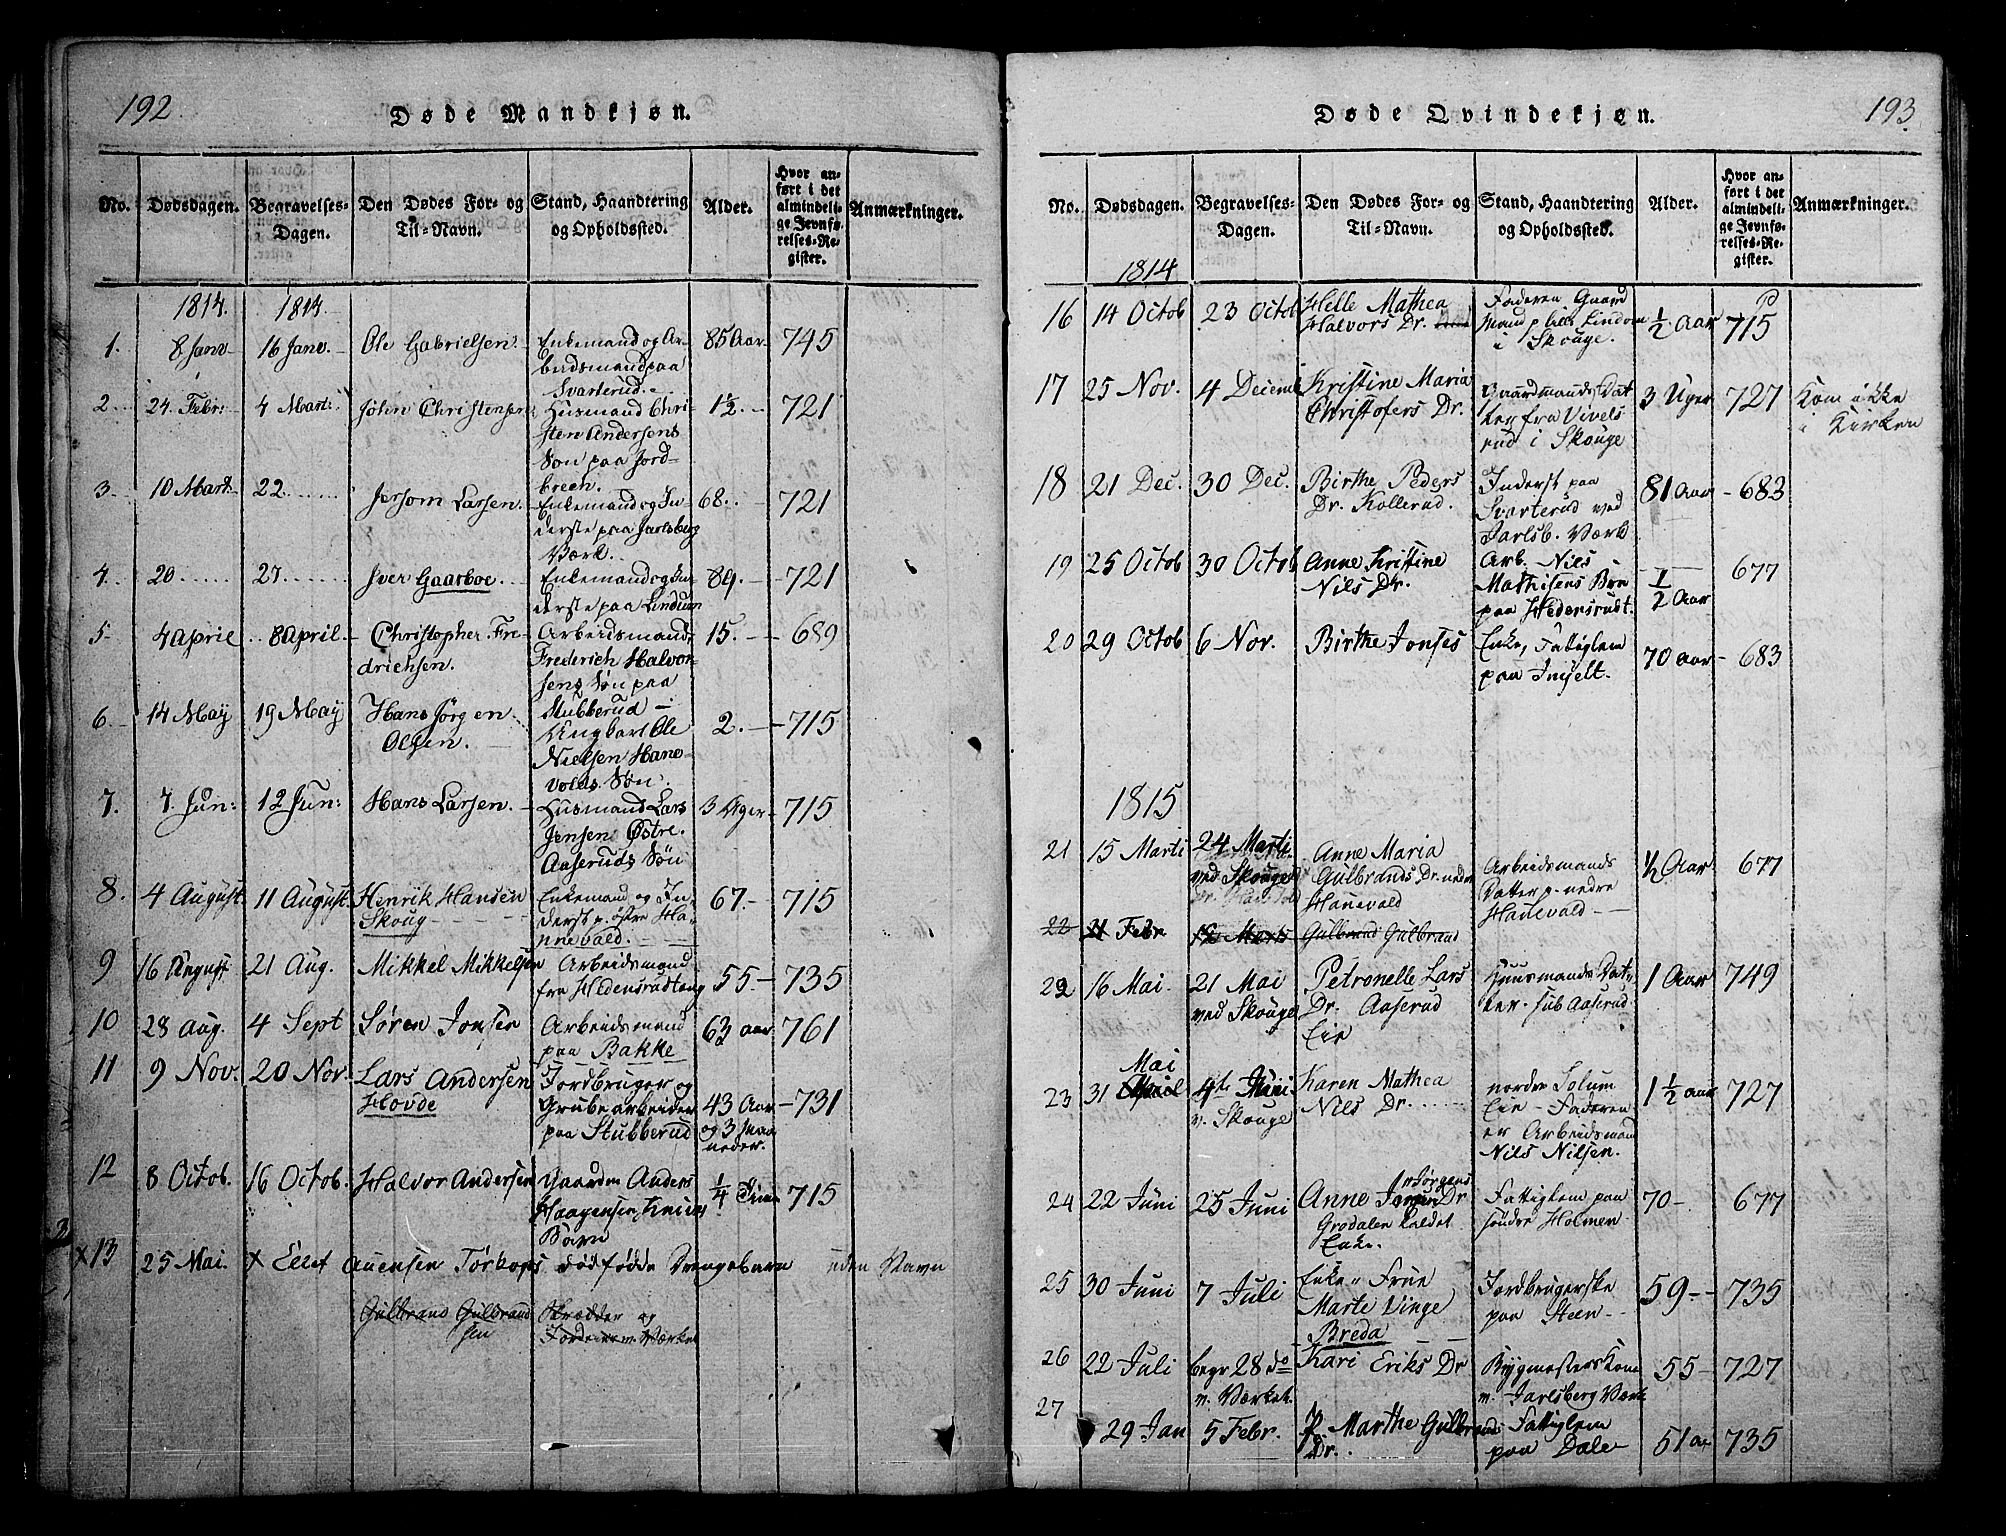 192.
Døde Mandkjøn.
No. Dødsdagen. Begravelses-Dagen. Den Dødes For- og Til-Navn. Stand, Haandtering og Opholdssted. Alder. Hvor anført i det almindelige Jevnførelses-Register. Anmærkninger.
1814. 1814.
1. 8 Janv 16 Janv. Ole Gabrielsen. Enkemand og Ar-
beidsmand paa
Svarterud. 85 Aar 745
2. 24 Febr: 4 Mart: John Christensen Husmand Chri-
sten Andersens
Søn paa Jord-
breen. 1½. 721
3. 10 Mart. 22. Larsen. Enkemand og In-
derste paa Jarlsberg
Værk. 68. 721
4. 20 27. Iver Gaarboe. Enkemand og In-
derste paa Lindum 89. 721
5 4 April 8 April. Christopher Fre-
drichsen. Arbeidsmand
Frederich Halvor-
sens Søn paa
Stubberud 15. 689
6. 14 May 19 May Hans Jørgen
Olsen. Ungkarl Ole
Nielsen Hane-
volds Søn. 2. 715
7. 7. Jun: 12 Jun: Hans Larsen. Husmand Lars
Jensen Østre
Aaseruds Søn 3 Uger 715
8. 4 August. 11 August. Henrik Hansen
Skoug Enkemand og In-
derst p. østre Ha-
nnevald. 67. 715
9 16 August 21 Aug. Mikkel Mikkelsen Arbeidsmand
fra Hedensrudtang 55 735
10 28 Aug. 4 Sept Søren Jonsen Arbeidsmand
paa Bakke 63 aar 761
11 9 Nov. 20 Nov. Lars Andersen
Hovde Jordbruger og
Grubearbeider
paa Stubberud 43 Aar
og 3 Maa
neder. 731
12 8 Octob. 16 Octob. Halvor Andersen Gaardm Anders
Haagensen
Barn ¼ 715
x13 25 Mai. x Ellef Auensen Torkops dødfødde Drengebarn uden Navn
Gulbrand Gulbrand
sen Skrædder og
v. Værket
193
Døde Qvindekjøn.
No. Dødsdagen. Begravelses-Dagen. Den Dødes For- og Til-Navn. Stand, Haandtering og Opholdssted. Alder. Hvor anført i det almindelige Jevnførelses-Register. Anmærkninger.
1814
16 14 Octob 23 Octob Helle Mathea
Halvors Dr. Faderen Gaard
Mand p lille Lindom
i Skouge. ½ Aar P
715
17 25 Nov. 4 Decemb Kristine Maria
Christofers Dr. Gaardmands Dat
ter fra Vivels
rud i Skouge 3 Uger 727 Kom ikke
i Kirken
18 21 Dec. 30 Dec. Birthe Peders
Dr. Kollerud. Inderst paa
Svarterud ved
Jarlsb. Værk 81 Aar 683
19 25 Octob 30 Octob Anne Kristine
Nils Dr. Arb. Nils
Mathisens Brn
paa Hedersrudt. ½ Aar 677
20 29 Octob 6 Nov. Birthe Jonses Enke, Fattiglem
paa Imjelt. 70 aar 683
1815
21 15 Marti 24 Marti
ved Skouge Anne Maria
Gulbrands Dr. nedre
Hanevald Arbeidsmands
Datter p. nedre
Hanevald ½ Aar 677
22 11 Febr 12 Marts Gulbrand Gulbrand
22 16 Mai. 21 Mai
ved Skouge Petronelle Lars
Dr. Aaserud
Eie Huusmands Dat-
ter. sub Aaserud 1 Aar 749
23 31 Mai
April 4de Juni
v. Skouge Karen Mathea
Nils Dr. nordre Solum
Eie Faderen
er Arbeidsmand
Nils Nilsen. 1½ aar 727
24 22 Juni 25 Juni Anne Jørgens Dr
Grodalen kaldet
Enke. Fattiglem paa
søndre Holmen 70 677
25 30 Juni 7 Juli Enke Frue
Marte Vinge
Breda Jordbrugerske
paa Steen 59 735
26 22 Juli begr 28 do
v. Værket. Kari Eriks Dr Bygmesters Kone
v. Jarlsberg Værk 55 727
27 29 Jan 5 Febr. P. Marthe Gulbrands
Dr. Fattiglem
paa Dale 51 aa 735